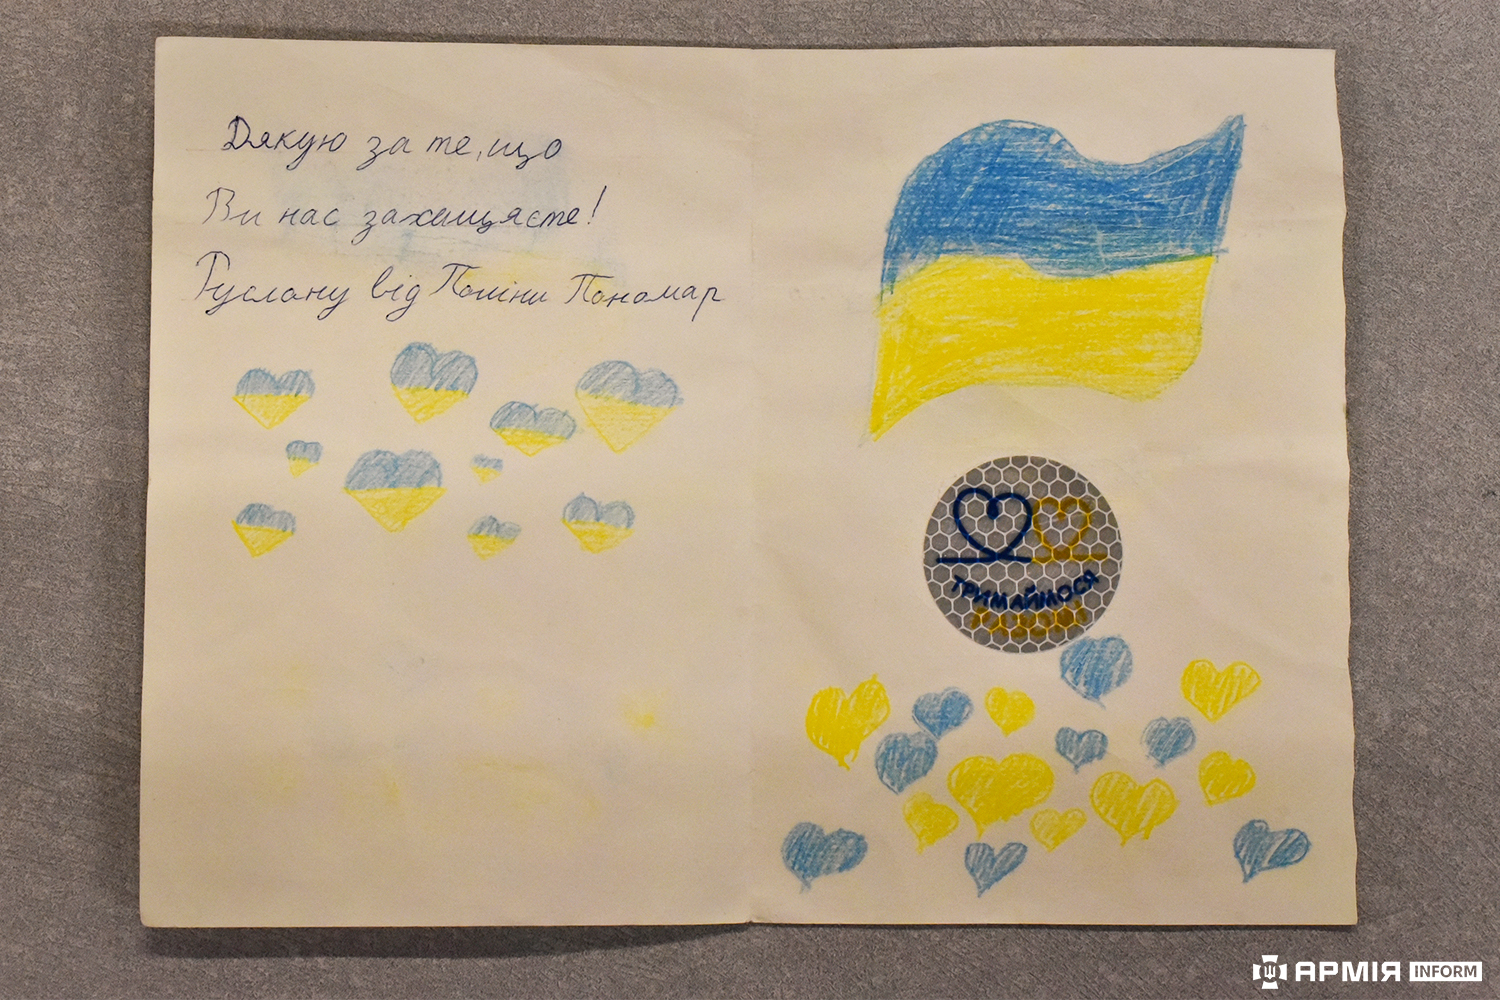 Дякую за те, що
Ви нас захищаєте!
Руслану від Поліни Пономар
ТРИМАЙМОСЯ
РАЗОМ
АРМІЯ INFORM